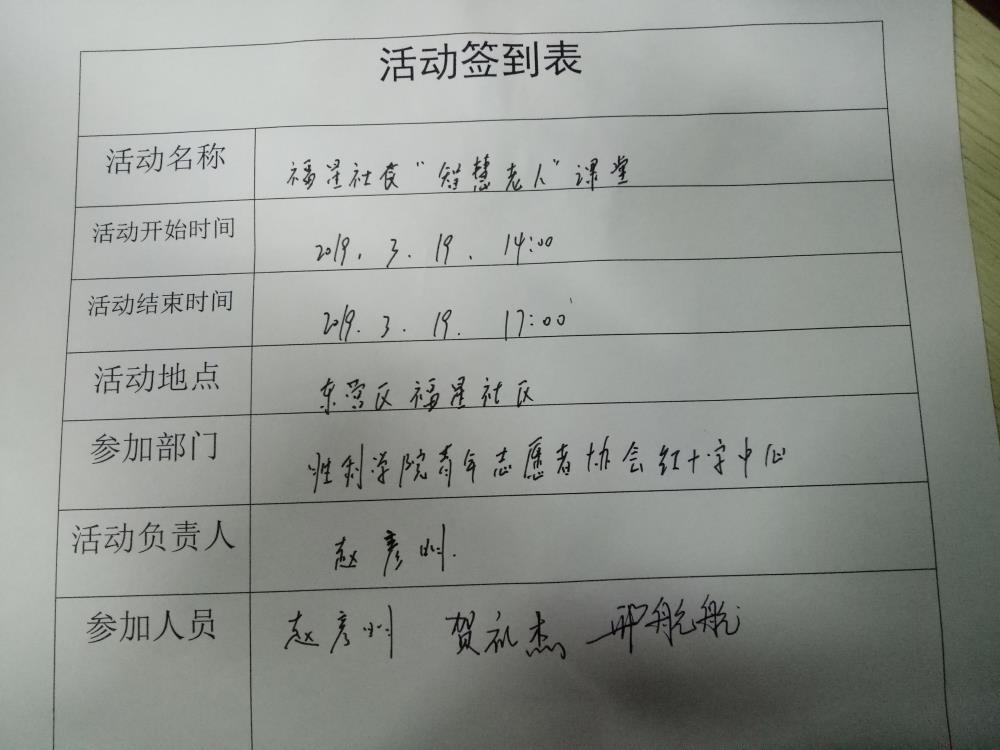 活动签到表
活动名称 福星社区“智慧老人”课堂
活动开始时间 2019.3.19. 14:00
活动结束时间 2019.3.19. 17:00
活动地点 东营区福星社区
参加部门 胜利学院青年志愿者协会红十字中心
活动负责人 赵彦州.
参加人员 赵彦州 贺礼杰 邢航航